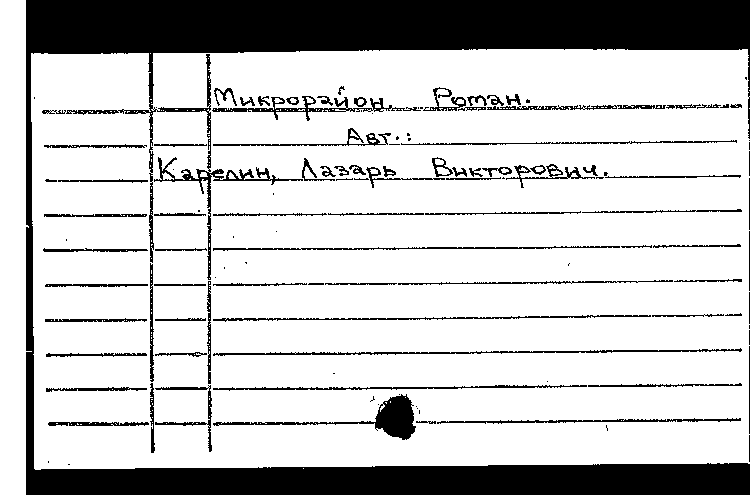 Микрорайон. Роман.
Авт.:
Карелин, Лазарь Викторович.